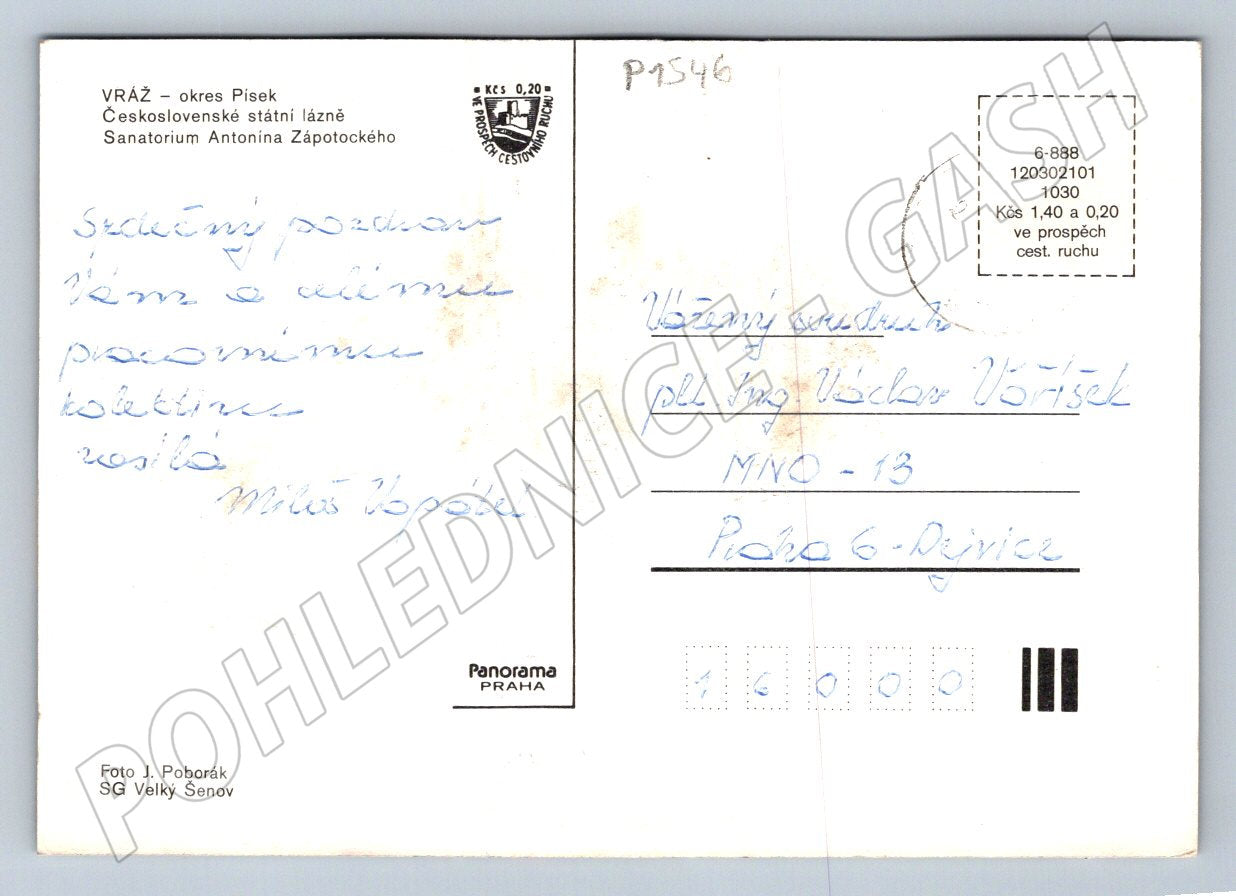 VRÁŽ – okres Písek
Československé státní lázně
Sanatorium Antonína Zápotockého
Kčs 0,20
VE PROSPĚCH CESTOVNÍHO RUCHU
P1546
6-888
120302101
1030
Kčs 1,40 a 0,20
ve prospěch
cest. ruchu
Srdečný pozdrav
Vám a celému
pracovnímu
kolektivu
zasílá
Miloš
Vážený soudruh
plk Ing. Václav Voříšek
MNO - 13
Praha 6 - Dejvice
16000
Panorama
PRAHA
Foto J. Poborák
SG Velký Šenov
POHLEDNICE - GASH